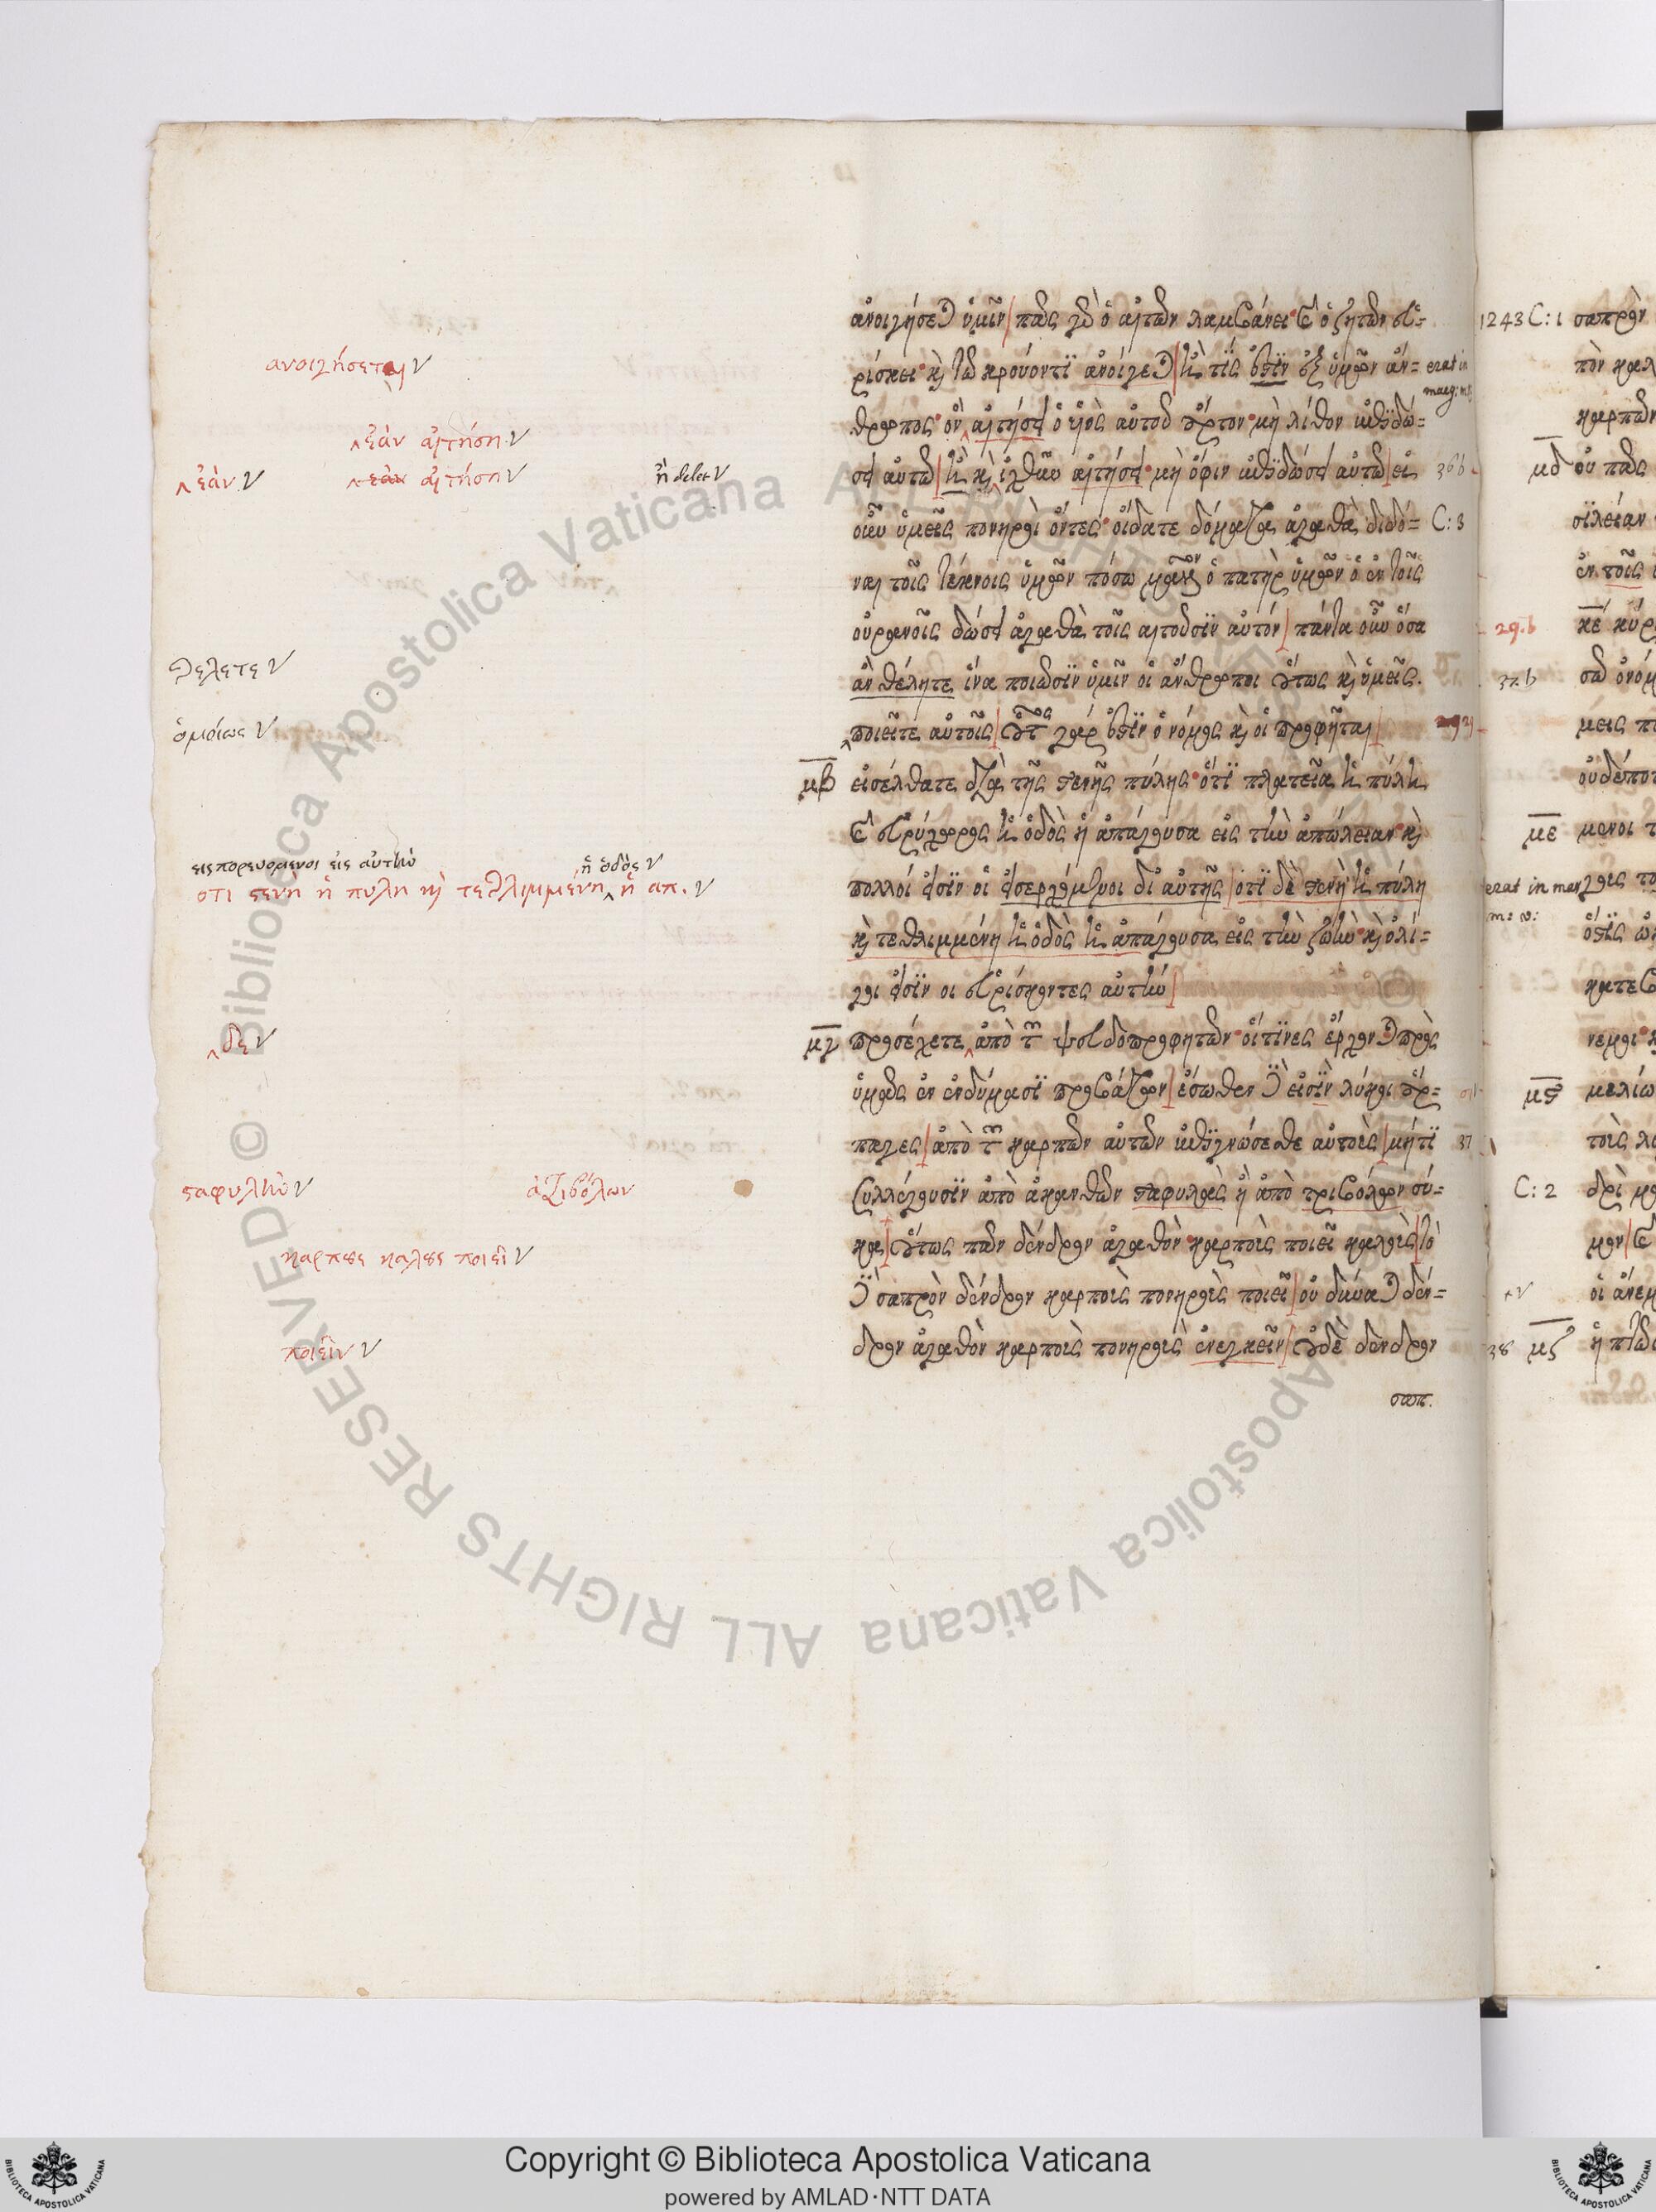 ἀνοιγήσεται ὑμῖν πᾶς γὰρ ὁ αἰτῶν λαμβάνει καὶ ὁ ζητῶν εὑ=
ρίσκει καὶ τῶ κρούοντϊ ἀνοίγεται ἢ τίς ἐστϊν ἐξ ὑμῶν ἄν=
θρωπος ὃν αἰτήσει ὁ υἱὸς αὐτοῦ ἄρτον μὴ λίθον ἐπϊδώ=
σει αὐτῶ ἢ καὶ ἰχθὺν αἰτήσει μὴ ὄφιν ἐπϊδώσει αὐτῶ εἰ
οὖν ὑμεῖς πονηροὶ ὄντες οἴδατε δόματα ἀγαθὰ διδό=
ναι τοῖς τέκνοις ὑμῶν πόσω μᾶλλον ὁ πατὴρ ὑμῶν ὁ ἐν τοῖς
οὐρανοῖς δώσει ἀγαθὰ τοῖς αἰτοῦσϊν αὐτόν πάντα οὖν ὅσα
ἂν θέλητε ἵνα ποιῶσϊν ὑμῖν οἱ ἄνθρωποι οὕτως καὶ ὑμεῖς.
ποιεῖτε αὐτοῖς οὗτος γάρ ἐστϊν ὁ νόμος καὶ οἱ προφῆται
μβ εἰσέλθατε διὰ τῆς στενῆς πύλης ὅτϊ πλατεῖα ἡ πύλη
καὶ εὐρύχωρος ἡ ὁδὸς ἡ ἀπάγουσα εἰς τὴν ἀπώλειαν καὶ
πολλοί εἰσϊν οἱ εἰσερχόμενοι δι αὐτῆς ὁτϊ δὲ στενὴ ἡ πύλη
καὶ τεθλιμμένη ἡ ὁδὸς ἡ ἀπάγουσα εἰς τὴν ζωὴν καὶ ὀλί=
γοι εἰσϊν οι εὑρίσκοντες αὐτήν
μγ προσέχετε ἀπὸ τῶν ψευδοπροφητῶν οἵτϊνες ἔρχονται πρὸς
ὑμᾶς ἐν ἐνδύμασϊ προβάτων ἔσωθεν δὲ εἰσϊν λύκοι ἅρ=
παγες ἀπὸ τῶν καρπῶν αὐτῶν ἐπϊγνώσεσθε αὐτούς μήτϊ
συλλέγουσϊν ἀπὸ ἀκανθῶν σταφυλὰς ἢ ἀπὸ τριβόλων σύ=
κα οὕτως πᾶν δένδρον ἀγαθὸν καρποὺς ποιεῖ καλοὺς τὸ
δὲ σαπρὸν δένδρον καρποὺς πονηροὺς ποιεῖ οὐ δύναται δέν=
δρον ἀγαθὸν καρποὺς πονηροὺς ἐνεγκεῖν οὐδὲ δένδρον
σαπ.
ανοιγήσεται V
ἐὰν αἰτήση V
ἐάν V
ἐὰν αἰτήση V
ἢ delet V
θελετε V
ὁμοίως V
εισπορευομενοι εἰς αὐτὴν
ἡ ὁδὸς V
οτι στενὴ ἡ πυλη καὶ τεθλιμμένη ἡ απ. V
δε V
σταφυλὴν V
ἀ τριβόλων
καρπους καλους ποιεῖ V
ποιεῖν V
erat in
marg: ms
36 b
C: 3
37
1243 C: 1 σαπρὸν
πὸν καλ
καρπῶν
μδ οὐ πᾶς
σϊλείαν
ἐν τοῖς
29. b κέ κύρ
37. b σῶ ὀνόμ
μεις π
οὐδέποτ
με μενοι τ
erat in mar γους το
m: v: ὅστϊς ὠ
κατεβ
νεμοι
μς μελίω
τοὺς λο
C: 2 δρὶ μ
μον
οἱ ἄνεμ
38 μζ ἡ πτῶσ
© Biblioteca Apostolica Vaticana ALL RIGHTS RESERVED
Copyright © Biblioteca Apostolica Vaticana
powered by AMLAD·NTT DATA
BIBLIOTECA APOSTOLICA VATICANA
BIBLIOTECA APOSTOLICA VATICANA